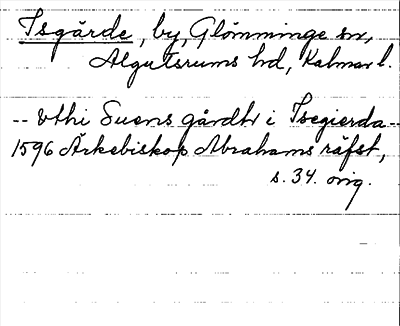 Isgärde, by, Glömminge sn,
Algutsrums hd, Kalmar l.
-- vthi Suens gårdh i Isegierda --
1596 Ärkebiskop Abrahams räfst,
s. 34. orig.